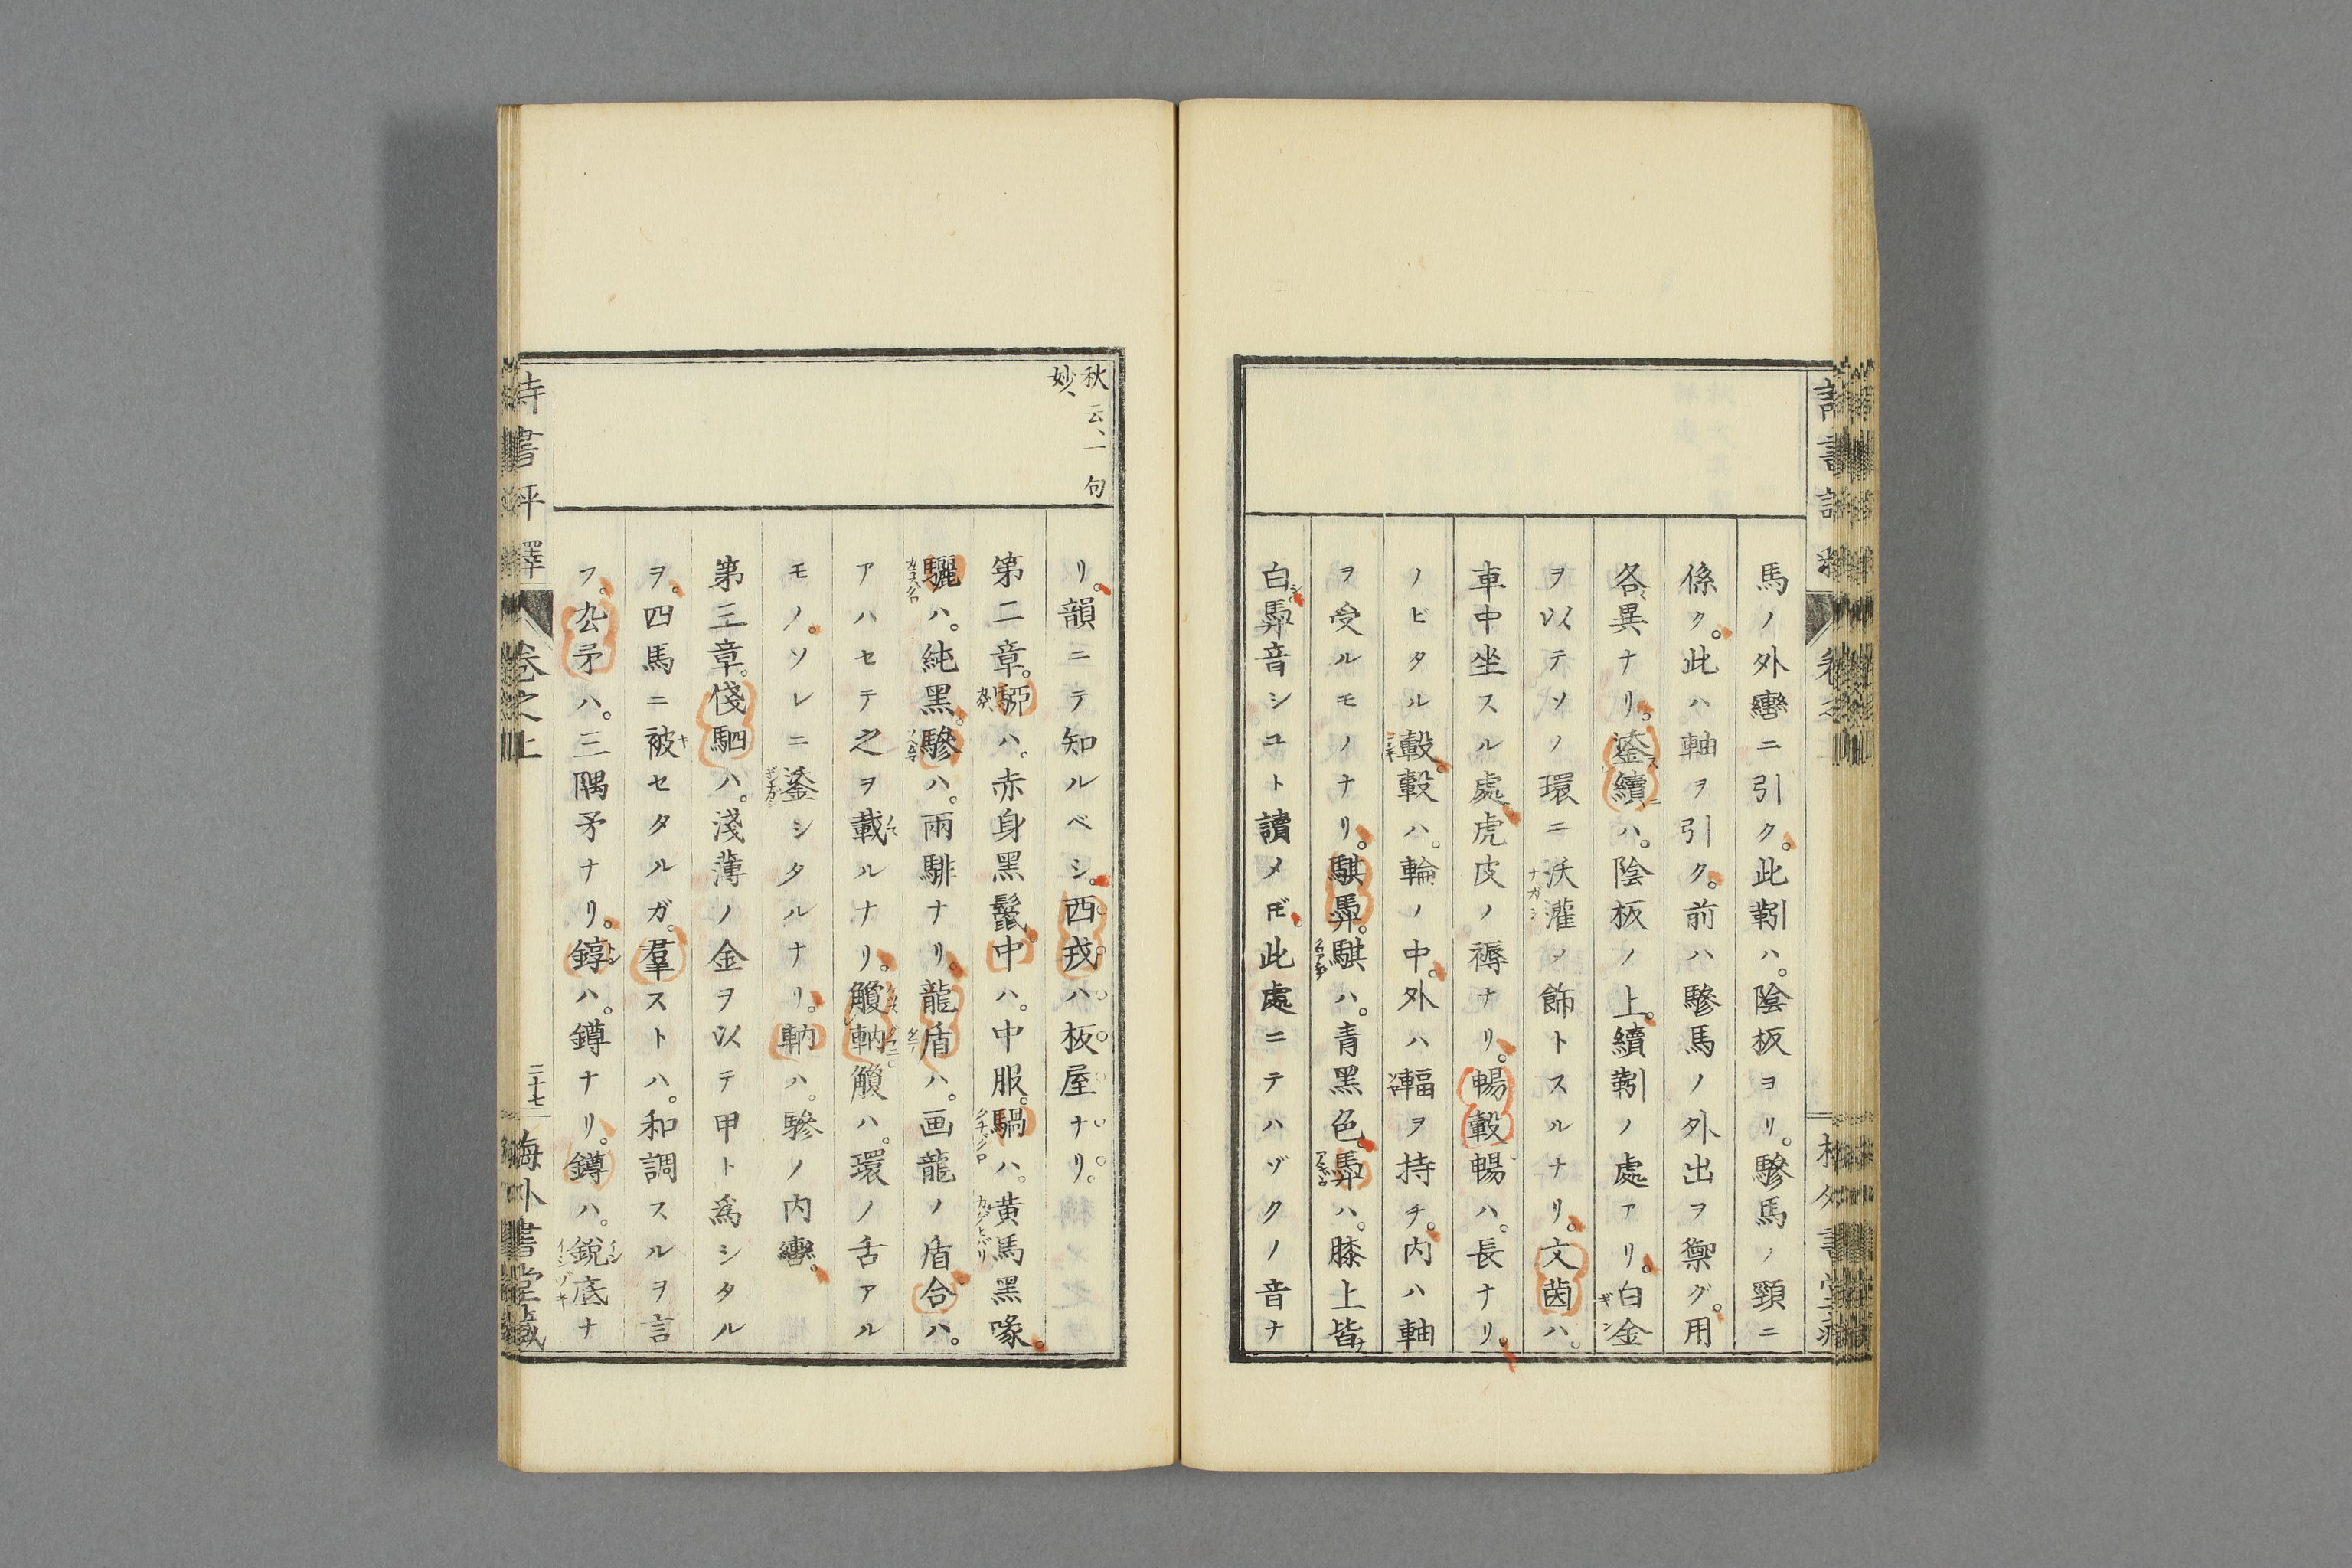 馬ノ外轡ニ引ク。此靷ハ。陰板ヨリ。驂馬ノ頸ニ
係ク。此ハ軸ヲ引ク。前ハ驂馬ノ外出ヲ禦グ。用
各〻異ナリ。鋈續ハ。陰板ノ上。續靷ノ處アリ。白金
ヲ以テソノ環ニ沃灌ノ飾トスルナリ。文茵ハ。
車中坐スル處。虎皮ノ褥ナリ。暢轂暢ハ。長ナリ。
ノビタル轂。轂ハ。輪ノ中。外ハ輻ヲ持チ。内ハ軸
ヲ受ルモノナリ。騏馵。騏ハ。青黒色。馵ハ。膝上皆
白シ。馵音シユト讀メ𪜈。此處ニテハヅクノ音ナ
秋云、一句
妙、
リ。韻ニテ知ルベシ。西戎ハ板屋ナリ。
第二章。駵ハ。赤身黑鬣。中ハ。中服。騧ハ。黄馬黑喙。
驪ハ。純黑。驂ハ。兩騑ナリ。龍盾ハ。画龍ノ盾。合ハ。
アハセテ之ヲ載ルナリ。觼軜觼ハ。環ノ舌アル
モノ。ソレニ鋈シタルナリ。軜ハ。驂ノ内轡。
第三章。俴駟ハ。淺薄ノ金ヲ以テ甲ト爲シタル
ヲ。四馬ニ被セタルガ。羣ストハ。和調スルヲ言
フ。厹矛ハ。三隅矛ナリ。錞ハ。鐏ナリ。鐏ハ。銳底ナ
詩書評釋
卷之上
二十七
梅外書堂藏